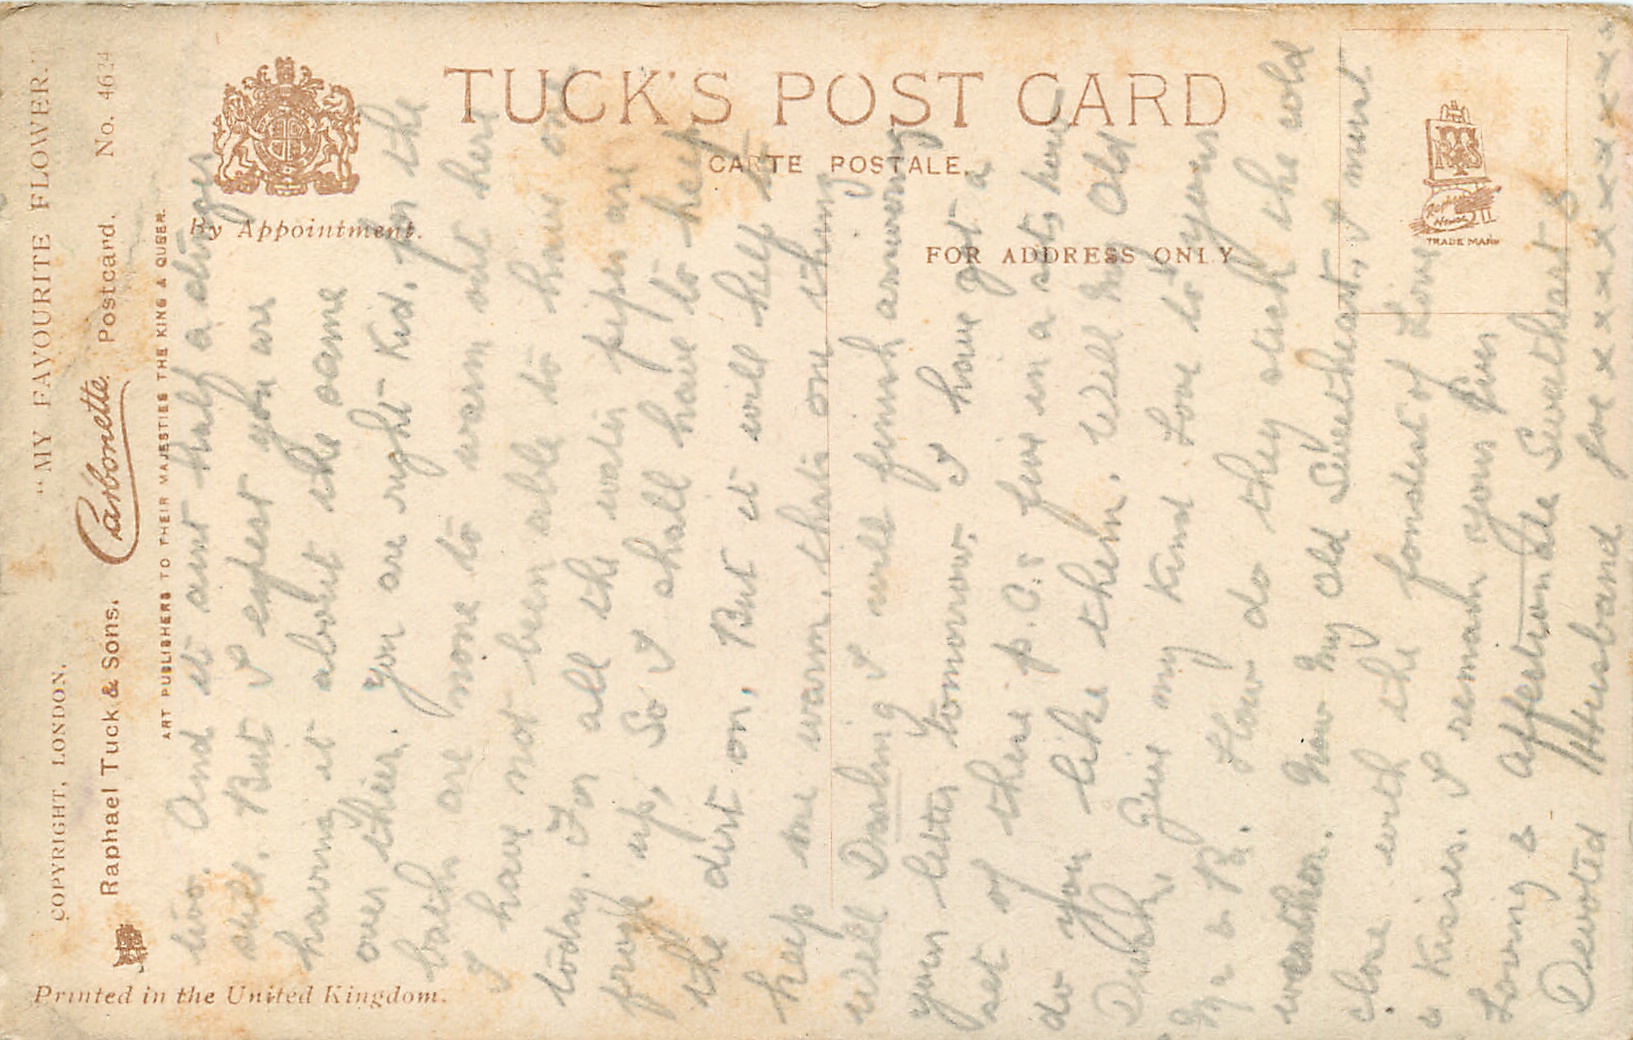 "MY FAVOURITE FLOWER."
COPYRIGHT, LONDON.
Raphael Tuck & Sons. Carbonette Postcard. No. 4634
ART PUBLISHERS TO THEIR MAJESTIES THE KING & QUEEN.
By Appointment.
TUCK'S POST CARD
CARTE POSTALE.
FOR ADDRESS ONLY
TRADE MARK
Printed in the United Kingdom.
two. And it aint half a
But I expect you are
having it about the same
over thier. You are right Kid, for the
are none to warm out here
I have not been able to have
today. For all the water pipes are
froze up, So I shall have to keep
the dirt on. But it will help to
keep me warm, thats one thing
Well Darling I will finish answering
your letter tomorrow. I have got a
set of these p.C.s five in a set, how
do you like them. Well my old
Dutch, Give my kind Love to your
Ma & Pa. How do they stick the cold
weather. Now my old Sweetheart, I must
close with the fondest of Love
& Kisses. I remain your Ever
Loving & Affectionate Sweetheart &
Devoted Husband Joe x x x x x x x x x